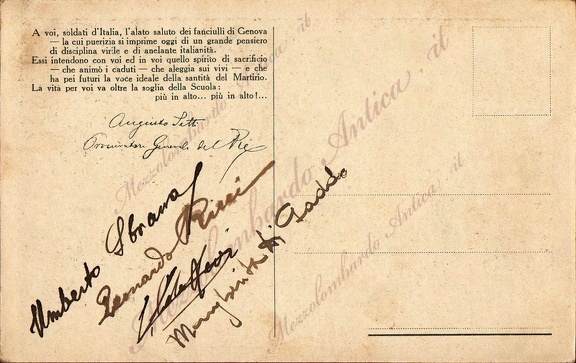 A voi, soldati d'Italia, l'alato saluto dei fanciulli di Genova
— la cui puerizia si imprime oggi di un grande pensiero
di disciplina virile e di anelante italianità.
Essi intendono con voi ed in voi quello spirito di sacrificio
— che animò i caduti — che aleggia sui vivi — e che
ha pei futuri la voce ideale della santità del Martirio.
La vita per voi va oltre la soglia della Scuola:
più in alto... più in alto!...
Augusto
Procuratore Generale del Re
Umberto Sbrana
Bernardo Ricci
Margherita di
Mezzolombardo Antica .it
Mezzolombardo Antica .it
Mezzolombardo Antica .it